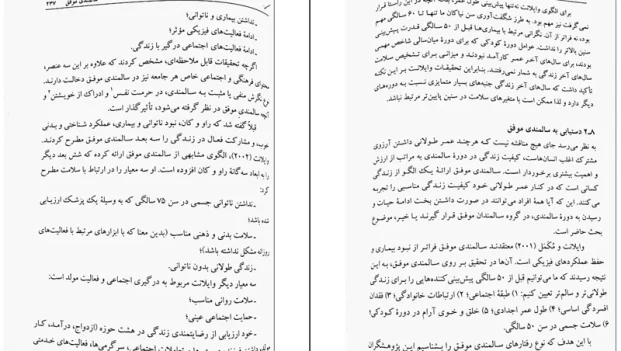 برای الگوی وایلانت نه‌تنها پیش‌بینی طول عمر، بلکه
نمی‌گرفت نیز مهم بود. به طرز شگفت‌آوری سن نیاکان ما تنها تا ۶۰ سالگی مهم
بود، نه فراتر از آن. نگرانی مرتبط با بیماری‌ها قبل از ۵۰ سالگی قدرت پیش‌بینی
سنین بالاتر را نداشت. عوامل دورهٔ کودکی که برای دورهٔ میان‌سالی شاخص مهمی
بودند، برای سال‌های آخر عمر کارآمد نبودند و میزانی برای تشخیص سلامت
سال‌های آخر زندگی به شمار نمی‌رفتند. بنابراین تحقیقات وایلانت بر این نکته
تأکید داشت که سال‌های آخر زندگی جنبه‌های بسیار متمایزی نسبت به دوره‌های
دیگر دارد و لذا ممکن است با متغیرهای سلامت در سنین پایین‌تر مرتبط نباشد.
۲.۸ دستیابی به سالمندی موفق
به نظر می‌رسد جای هیچ مناقشه نیست که هرچند عمر طولانی داشتن آرزوی
مشترک اغلب انسان‌هاست، کیفیت زندگی در دورهٔ سالمندی به مراتب از ارزش
و اهمیت بیشتری برخوردار است. سالمندی موفق ارائهٔ یک الگو از زندگی
کسانی است که در کنار عمر طولانی خود کیفیت زندگی مناسبی را تجربه
می‌کنند. این که آیا همهٔ افراد می‌توانند در صورت داشتن بخت ادامهٔ حیات و
رسیدن به دورهٔ سالمندی، در گروه سالمندان موفق قرار گیرند یا خیر، موضوع
بحث حاضر است.
وایلانت و مُکمَل (۲۰۰۱) معتقدند سالمندی موفق فراتر از نبود بیماری و
حفظ عملکردهای فیزیکی است. آن‌ها در تحقیق بر روی سالمندی موفق، به این
نتیجه رسیدند که ما می‌توانیم قبل از ۵۰ سالگی پیش‌بینی‌کننده‌هایی را برای زندگی
طولانی‌تر و سالم‌تر تعیین کنیم: ۱) طبقهٔ اجتماعی؛ ۲) ارتباطات خانوادگی؛ ۳) فقدان
افسردگی اساسی؛ ۴) طول عمر اجدادی؛ ۵) خلق و خوی آرام در دورهٔ کودکی؛
۶) سلامت جسمی در سن ۵۰ سالگی.
با این هدف که نوع رفتارهای سالمندی موفق را بشناسیم این پژوهشگران
سالمندی موفق ۲۳۷
ـ نداشتن بیماری و ناتوانی؛
ـ ادامهٔ فعالیت‌های فیزیکی مؤثر؛
ـ ادامهٔ فعالیت‌های اجتماعی درگیر با زندگی.
اگرچه تحقیقات قابل ملاحظه‌ای، مشخص کردند که علاوه بر این سه عنصر،
محتوای فرهنگی و اجتماعی خاص هر جامعه نیز در سالمندی موفق دخالت دارند.
نوع نگرش منفی یا مثبت به سالمندی، در حرمت نفس۱ و ادراک از خویشتن۲ و
آنچه سالمندی موفق در نظر گرفته می‌شود، تأثیرگذار است.
قبلاً گفته شد که راو و کان، نبود ناتوانی و بیماری، عملکرد شناختی و بدنی
خوب، و مشارکت فعال در زندگی را سه بعد سالمندی موفق مطرح کردند.
وایلانت (۲۰۰۲)، الگوی مشابهی از سالمندی موفق ارائه کرده که شش بعد دیگر
را به ابعاد سه‌گانهٔ راو و کان افزوده است. او سه معیار را در ارتباط با سلامت مطرح
کرد:
ـ نداشتن ناتوانی جسمی در سن ۷۵ سالگی که به وسیلهٔ یک پزشک ارزیابی
شده باشد؛
ـ سلامت بدنی و ذهنی مناسب (بدین معنا که با ابزارهای مرتبط با فعالیت‌های
روزانه مشکل نداشته باشد)؛
ـ زندگی طولانی بدون ناتوانی.
سه معیار دیگر وایلانت مربوط به درگیری اجتماعی و فعالیت مولد است:
ـ سلامت روانی مناسب؛
ـ حمایت اجتماعی عینی؛
ـ خود ارزیابی از رضایتمندی زندگی در هشت حوزه (ازدواج، درآمد، کار
تعاملات اجتماعی، سرگرمی‌ها، فعالیت‌های خدمتی